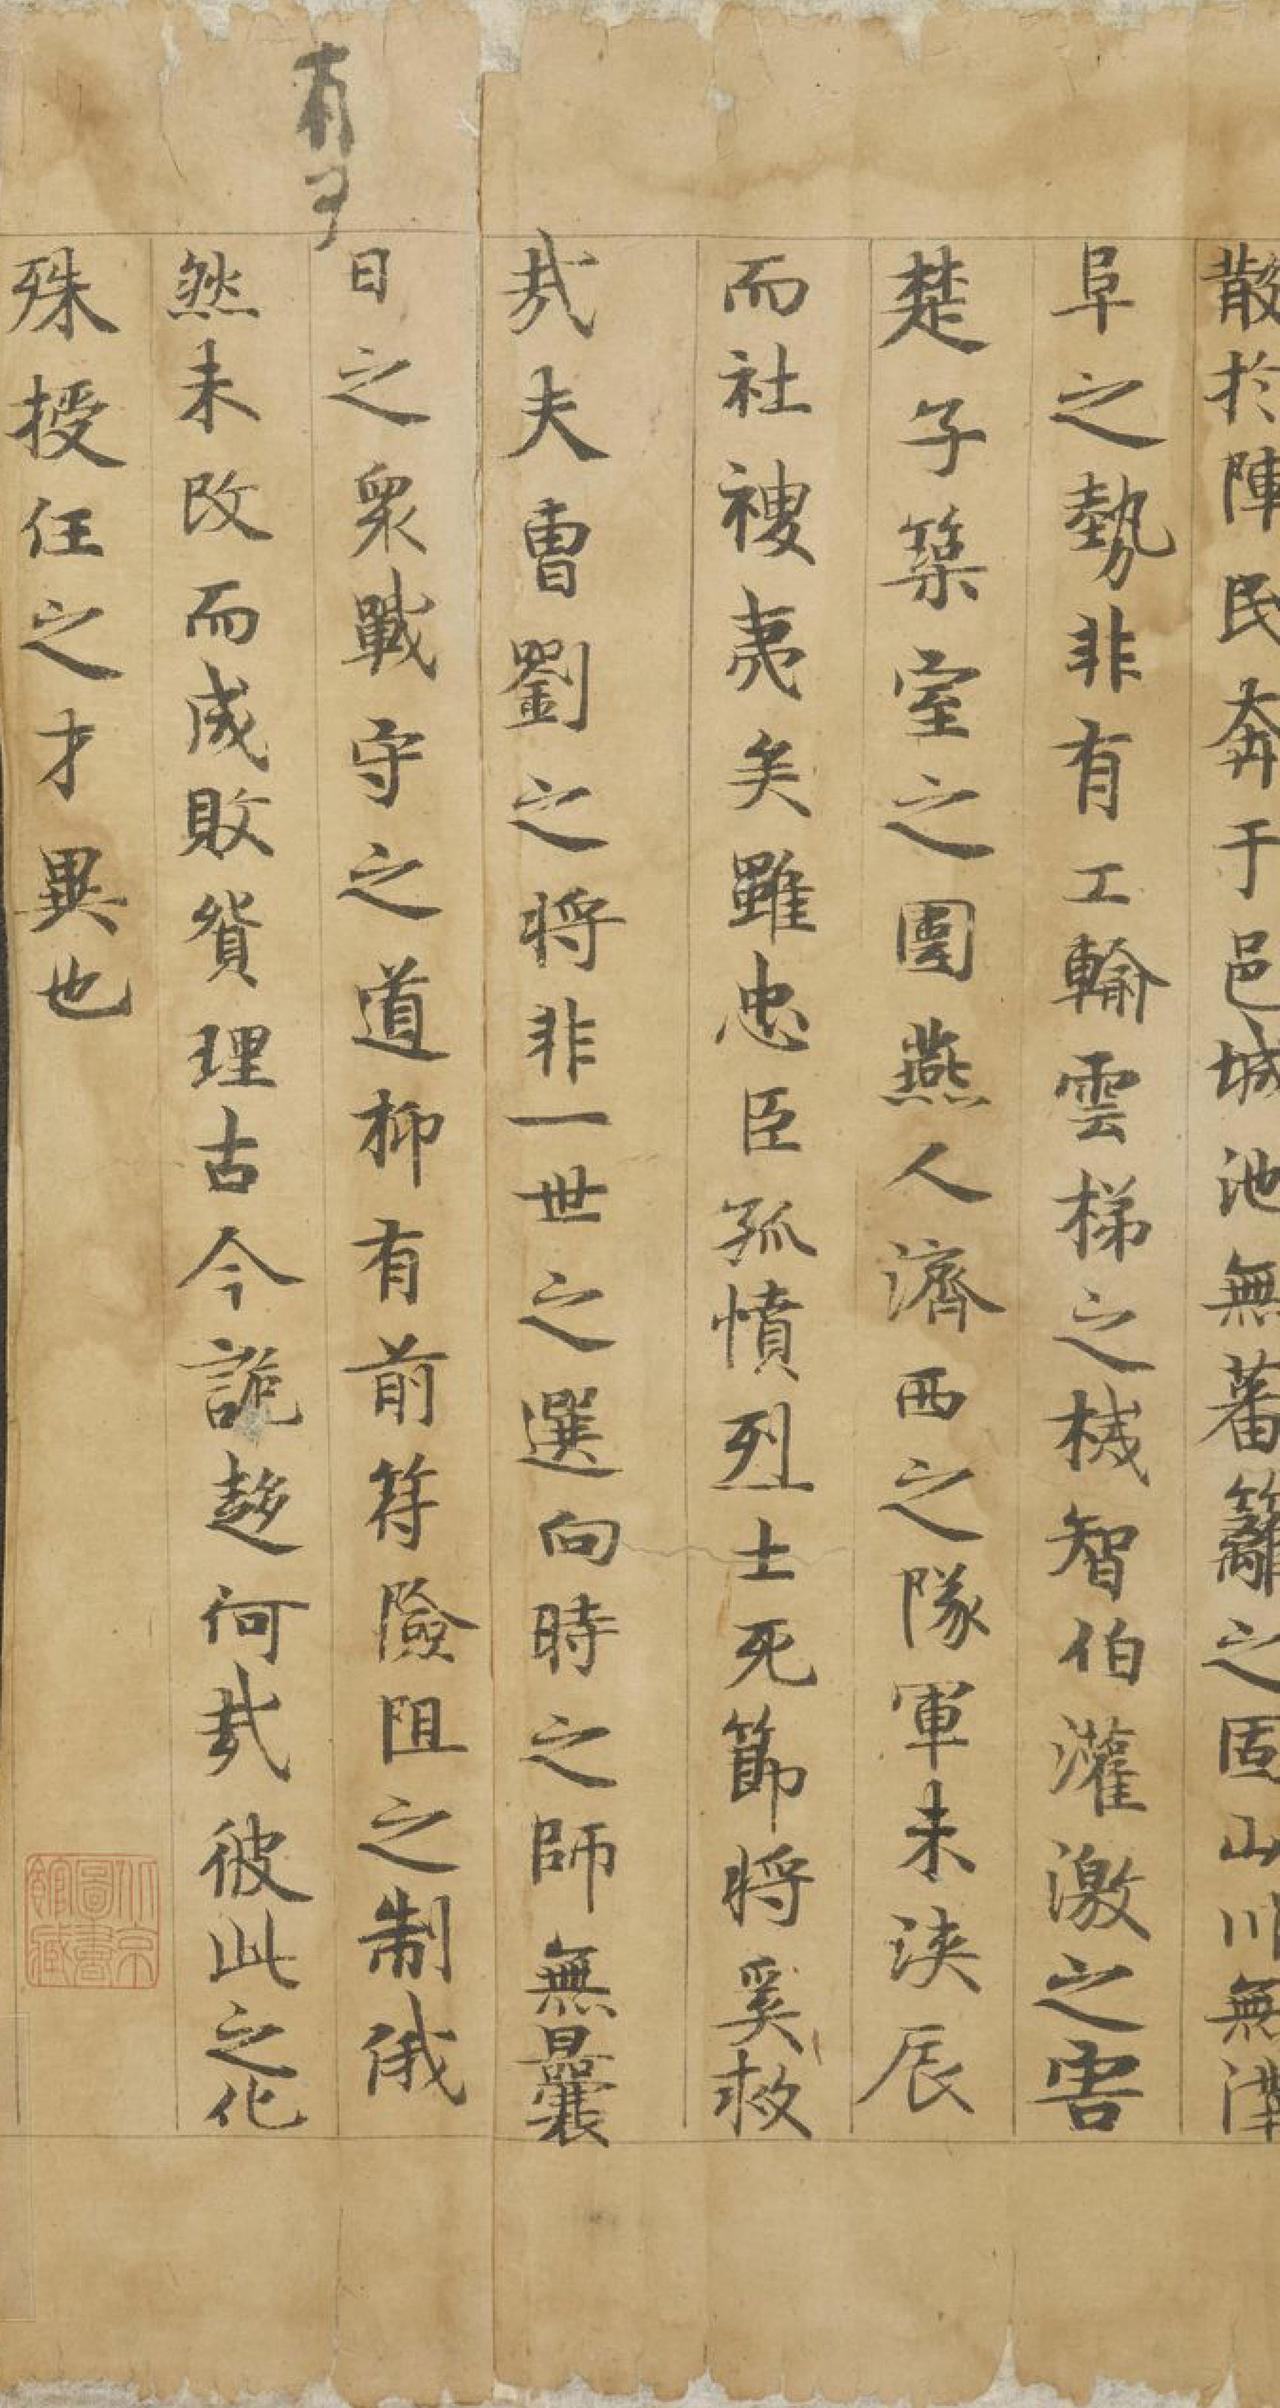 散於陣民奔于邑城池無蕃籬之固山川無溝
阜之勢非有工輸雲梯之械智伯灌激之害
楚子築室之圍燕人濟西之隊軍未浹辰
而社稷夷矣雖忠臣孤憤烈士死節將奚救
哉夫曹劉之將非一世之選向時之師無曩
日之衆戰守之道抑有前符險阻之制俄
然未改而成敗貿理古今詭趍何哉彼此之化
殊授任之才異也
北京圖書館藏